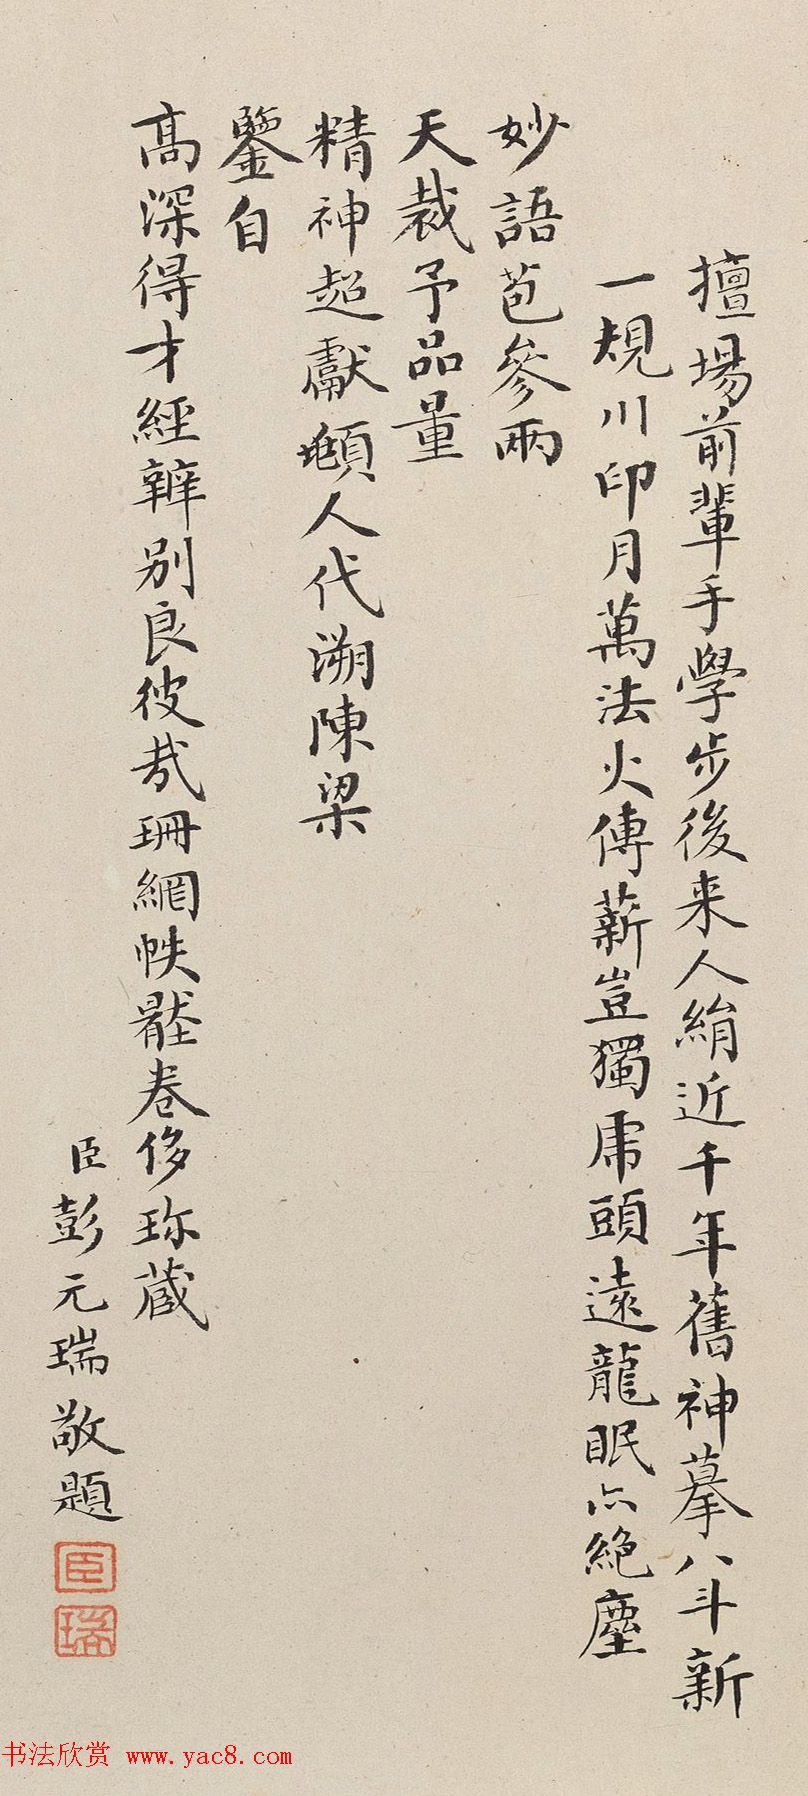 擅場前輩手學步後来人絹近千年舊神摹八斗新
一規川印月萬法火傳薪豈獨虎頭遠龍眠亦絶塵
妙語苞參兩
天裁予品量
精神超獻頫人代溯陳梁
鑒自
高深得才經辨別良彼哉珊網帙㲲卷侈珎蔵
臣彭元瑞敬題
臣
瑞
书法欣赏 www.yac8.com